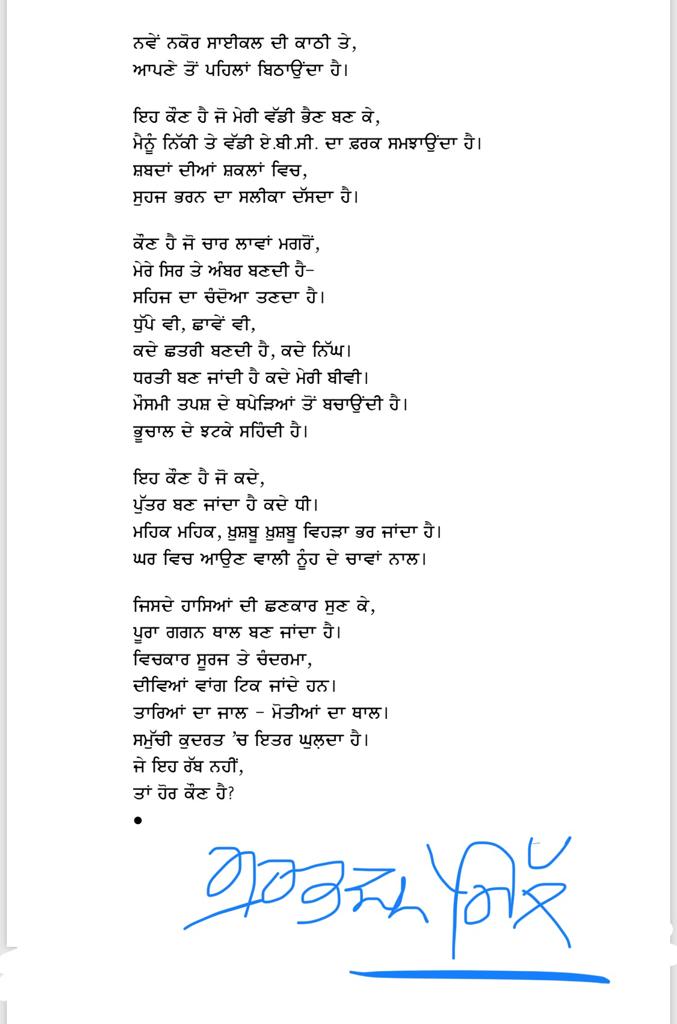 ਨਵੇਂ ਨਕੋਰ ਸਾਈਕਲ ਦੀ ਕਾਠੀ ਤੇ,
ਆਪਣੇ ਤੋਂ ਪਹਿਲਾਂ ਬਿਠਾਉਂਦਾ ਹੈ।
ਇਹ ਕੌਣ ਹੈ ਜੋ ਮੇਰੀ ਵੱਡੀ ਭੈਣ ਬਣ ਕੇ,
ਮੈਨੂੰ ਨਿੱਕੀ ਤੇ ਵੱਡੀ ਏ.ਬੀ.ਸੀ. ਦਾ ਫ਼ਰਕ ਸਮਝਾਉਂਦਾ ਹੈ।
ਸ਼ਬਦਾਂ ਦੀਆਂ ਸ਼ਕਲਾਂ ਵਿਚ,
ਸੁਹਜ ਭਰਨ ਦਾ ਸਲੀਕਾ ਦੱਸਦਾ ਹੈ।
ਕੌਣ ਹੈ ਜੋ ਚਾਰ ਲਾਵਾਂ ਮਗਰੋਂ,
ਮੇਰੇ ਸਿਰ ਤੇ ਅੰਬਰ ਬਣਦੀ ਹੈ–
ਸਹਿਜ ਦਾ ਚੰਦੋਆ ਤਣਦਾ ਹੈ।
ਧੁੱਪੇ ਵੀ, ਛਾਵੇਂ ਵੀ,
ਕਦੇ ਛਤਰੀ ਬਣਦੀ ਹੈ, ਕਦੇ ਨਿੱਘ।
ਧਰਤੀ ਬਣ ਜਾਂਦੀ ਹੈ ਕਦੇ ਮੇਰੀ ਬੀਵੀ।
ਮੌਸਮੀ ਤਪਸ਼ ਦੇ ਥਪੇੜਿਆਂ ਤੋਂ ਬਚਾਉਂਦੀ ਹੈ।
ਭੂਚਾਲ ਦੇ ਝਟਕੇ ਸਹਿੰਦੀ ਹੈ।
ਇਹ ਕੌਣ ਹੈ ਜੋ ਕਦੇ,
ਪੁੱਤਰ ਬਣ ਜਾਂਦਾ ਹੈ ਕਦੇ ਧੀ।
ਮਹਿਕ ਮਹਿਕ, ਖ਼ੁਸ਼ਬੂ ਖ਼ੁਸ਼ਬੂ ਵਿਹੜਾ ਭਰ ਜਾਂਦਾ ਹੈ।
ਘਰ ਵਿਚ ਆਉਣ ਵਾਲੀ ਨੂੰਹ ਦੇ ਚਾਵਾਂ ਨਾਲ।
ਜਿਸਦੇ ਹਾਸਿਆਂ ਦੀ ਛਣਕਾਰ ਸੁਣ ਕੇ,
ਪੂਰਾ ਗਗਨ ਥਾਲ ਬਣ ਜਾਂਦਾ ਹੈ।
ਵਿਚਕਾਰ ਸੂਰਜ ਤੇ ਚੰਦਰਮਾ,
ਦੀਵਿਆਂ ਵਾਂਗ ਟਿਕ ਜਾਂਦੇ ਹਨ।
ਤਾਰਿਆਂ ਦਾ ਜਾਲ – ਮੋਤੀਆਂ ਦਾ ਥਾਲ।
ਸਮੁੱਚੀ ਕੁਦਰਤ 'ਚ ਇਤਰ ਘੁਲ਼ਦਾ ਹੈ।
ਜੇ ਇਹ ਰੱਬ ਨਹੀਂ,
ਤਾਂ ਹੋਰ ਕੌਣ ਹੈ?
•
ਗੁਰਭਜਨ ਗਿੱਲ